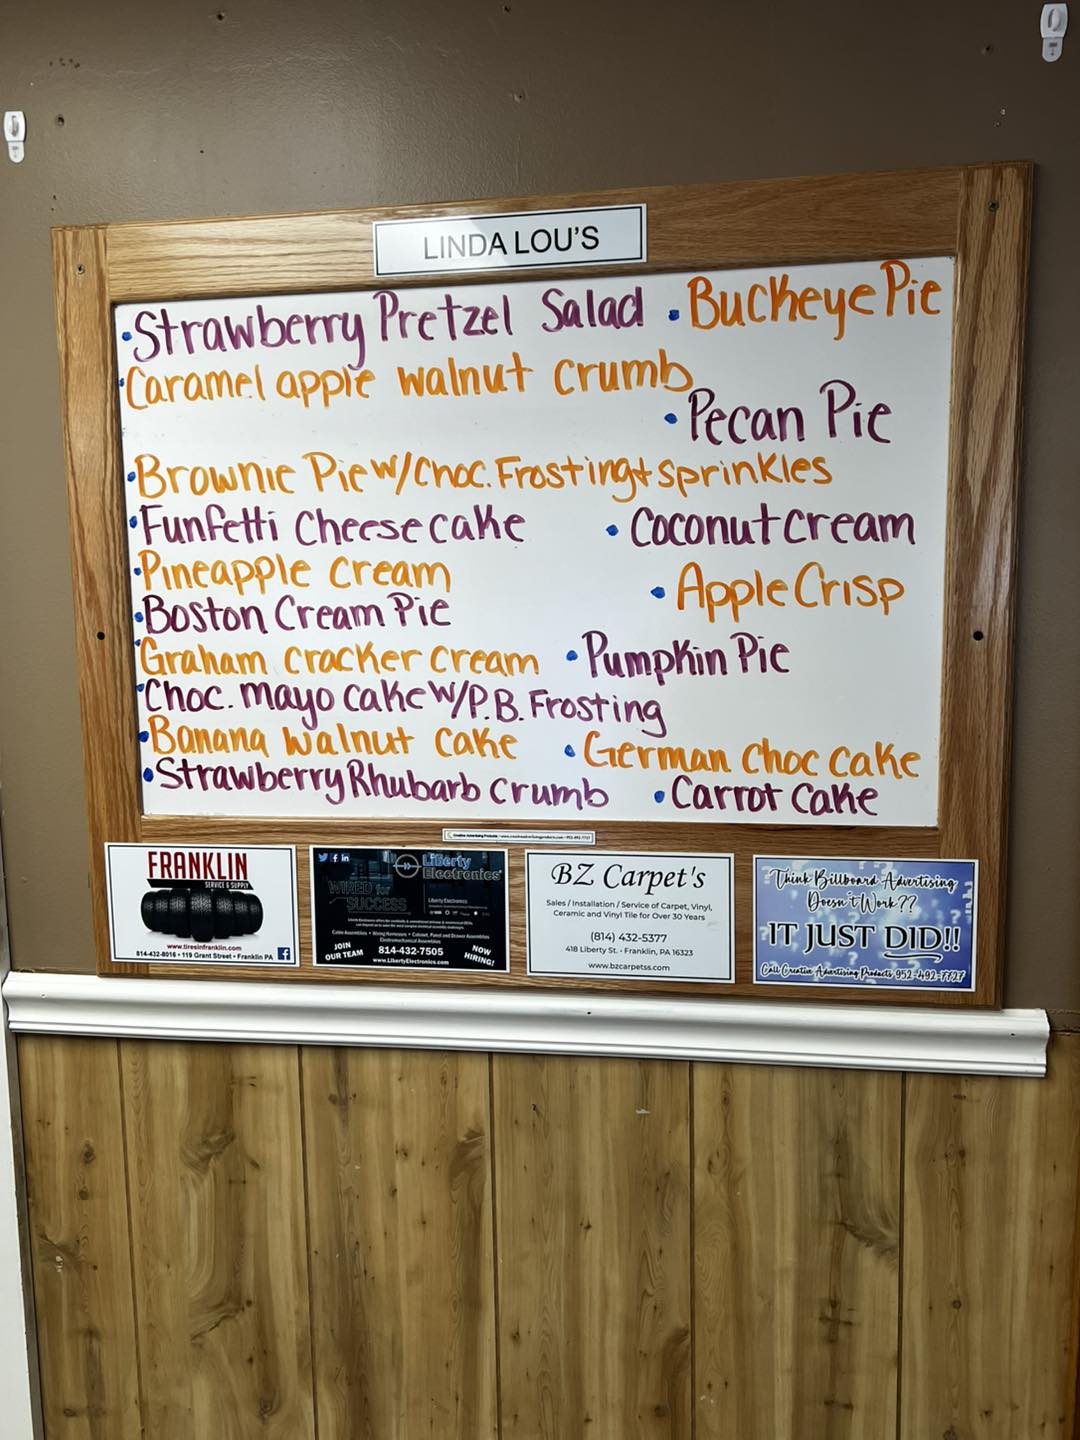 LINDA LOU'S
• Strawberry Pretzel Salad • Buckeye Pie
• Caramel apple walnut crumb
• Pecan Pie
• Brownie Pie w/choc. Frosting + sprinkles
• Funfetti Cheesecake • Coconut cream
• Pineapple cream • Apple Crisp
• Boston Cream Pie
• Graham cracker cream • Pumpkin Pie
• Choc. mayo cake w/P.B. Frosting
• Banana walnut cake • German choc cake
• Strawberry Rhubarb crumb • Carrot cake
FRANKLIN
SERVICE & SUPPLY
www.tiresinfranklin.com
814-432-8016 • 119 Grant Street • Franklin PA
Liberty
Electronics
WIRED for
SUCCESS
Liberty Electronics
Cable Assemblies • Wiring Harnesses • Cabinet, Panel and Drawer Assemblies
Electromechanical Assemblies
JOIN
OUR TEAM
814-432-7505
www.LibertyElectronics.com
NOW
HIRING!
BZ Carpet's
Sales / Installation / Service of Carpet, Vinyl,
Ceramic and Vinyl Tile for Over 30 Years
(814) 432-5377
418 Liberty St. - Franklin, PA 16323
www.bzcarpetss.com
Think Billboard Advertising
Doesn't Work??
IT JUST DID!!
Call Creative Advertising Products 952-492-7727